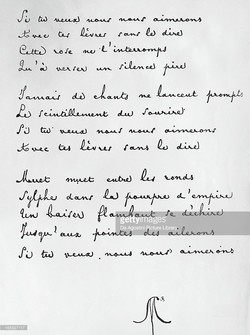 Si tu veux nous nous aimerons
Avec tes lèvres sans le dire
Cette rose ne l'interromps
Qu'à verser un silence pire
Jamais de chants ne lancent prompts
Le scintillement du sourire
Si tu veux nous nous aimerons
Avec tes lèvres sans le dire
Muet muet entre les ronds
Sylphe dans la pourpre d'empire
Un baiser flambant se déchire
Jusqu'aux pointes des ailerons
Si tu veux nous nous aimerons
gettyimages
De Agostini Picture Library